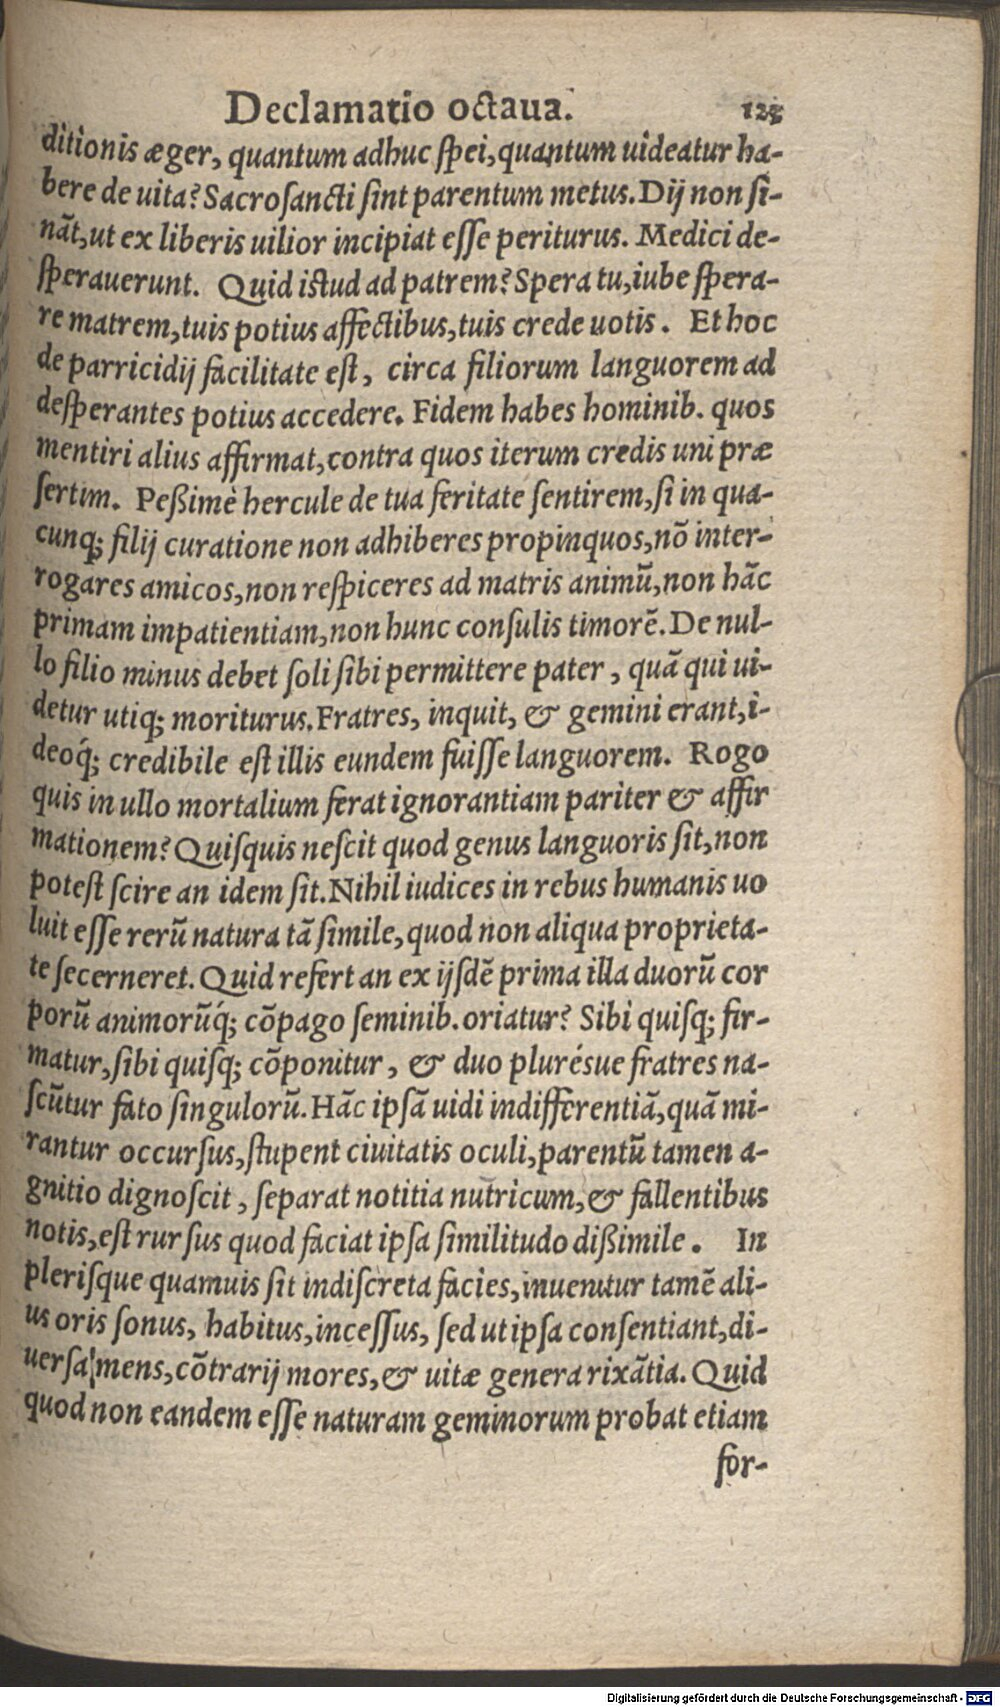 Declamatio octaua. 125
ditionis æger, quantum adhuc ſpei, quantum uideatur ha-
bere de uita? Sacroſancti ſint parentum metus. Dij non ſi-
nāt, ut ex liberis uilior incipiat eſſe periturus. Medici de-
ſperauerunt. Quid istud ad patrem? Spera tu, iube ſpera-
re matrem, tuis potius affectibus, tuis crede uotis. Et hoc
de parricidij facilitate eſt, circa filiorum languorem ad
deſperantes potius accedere. Fidem habes hominib. quos
mentiri alius affirmat, contra quos iterum credis uni præ
ſertim. Peßimè hercule de tua feritate ſentirem, ſi in qua-
cunq; filij curatione non adhiberes propinquos, nō inter-
rogares amicos, non reſpiceres ad matris animū, non hāc
primam impatientiam, non hunc conſulis timorē. De nul-
lo filio minus debet ſoli ſibi permittere pater, quā qui ui-
detur utiq; moriturus. Fratres, inquit, & gemini erant, i-
deoq́; credibile eſt illis eundem fuiſſe languorem. Rogo
quis in ullo mortalium ferat ignorantiam pariter & affir
mationem? Quiſquis neſcit quod genus languoris ſit, non
poteſt ſcire an idem ſit. Nihil iudices in rebus humanis uo
luit eſſe rerū natura tā ſimile, quod non aliqua proprieta-
te ſecerneret. Quid refert an ex ijſdē prima illa duorū cor
porū animorūq́; cōpago ſeminib. oriatur? Sibi quiſq; fir-
matur, ſibi quiſq; cōponitur, & duo plurésue fratres na-
ſcūtur fato ſingulorū. Hāc ipſā uidi indifferentiā, quā mi-
rantur occurſus, ſtupent ciuitatis oculi, parentū tamen a-
gnitio dignoſcit, ſeparat notitia nutricum, & fallentibus
notis, eſt rurſus quod faciat ipſa ſimilitudo dißimile. In
pleriſque quamuis ſit indiſcreta facies, inuenitur tamē ali-
us oris ſonus, habitus, inceſſus, ſed ut ipſa conſentiant, di-
uerſa mens, cōtrarij mores, & uitæ genera rixātia. Quid
quod non eandem eſſe naturam geminorum probat etiam
for-
Digitalisierung gefördert durch die Deutsche Forschungsgemeinschaft - DFG